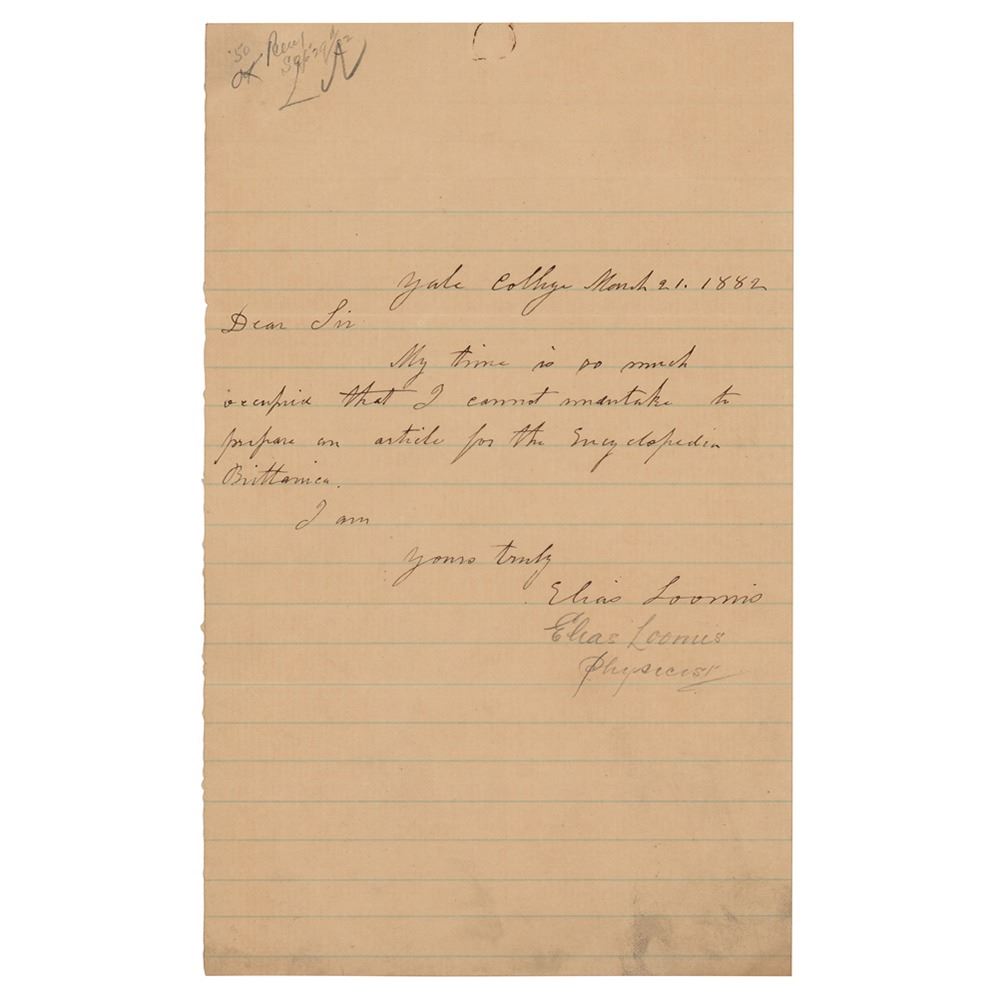 '50
Yale College March 21. 1882
Dear Sir
My time is so much
occupied that I cannot undertake to
prepare an article for the Encyclopedia
Brittanica.
I am
Yours truly
Elias Loomis
Elias Loomis
Physicist